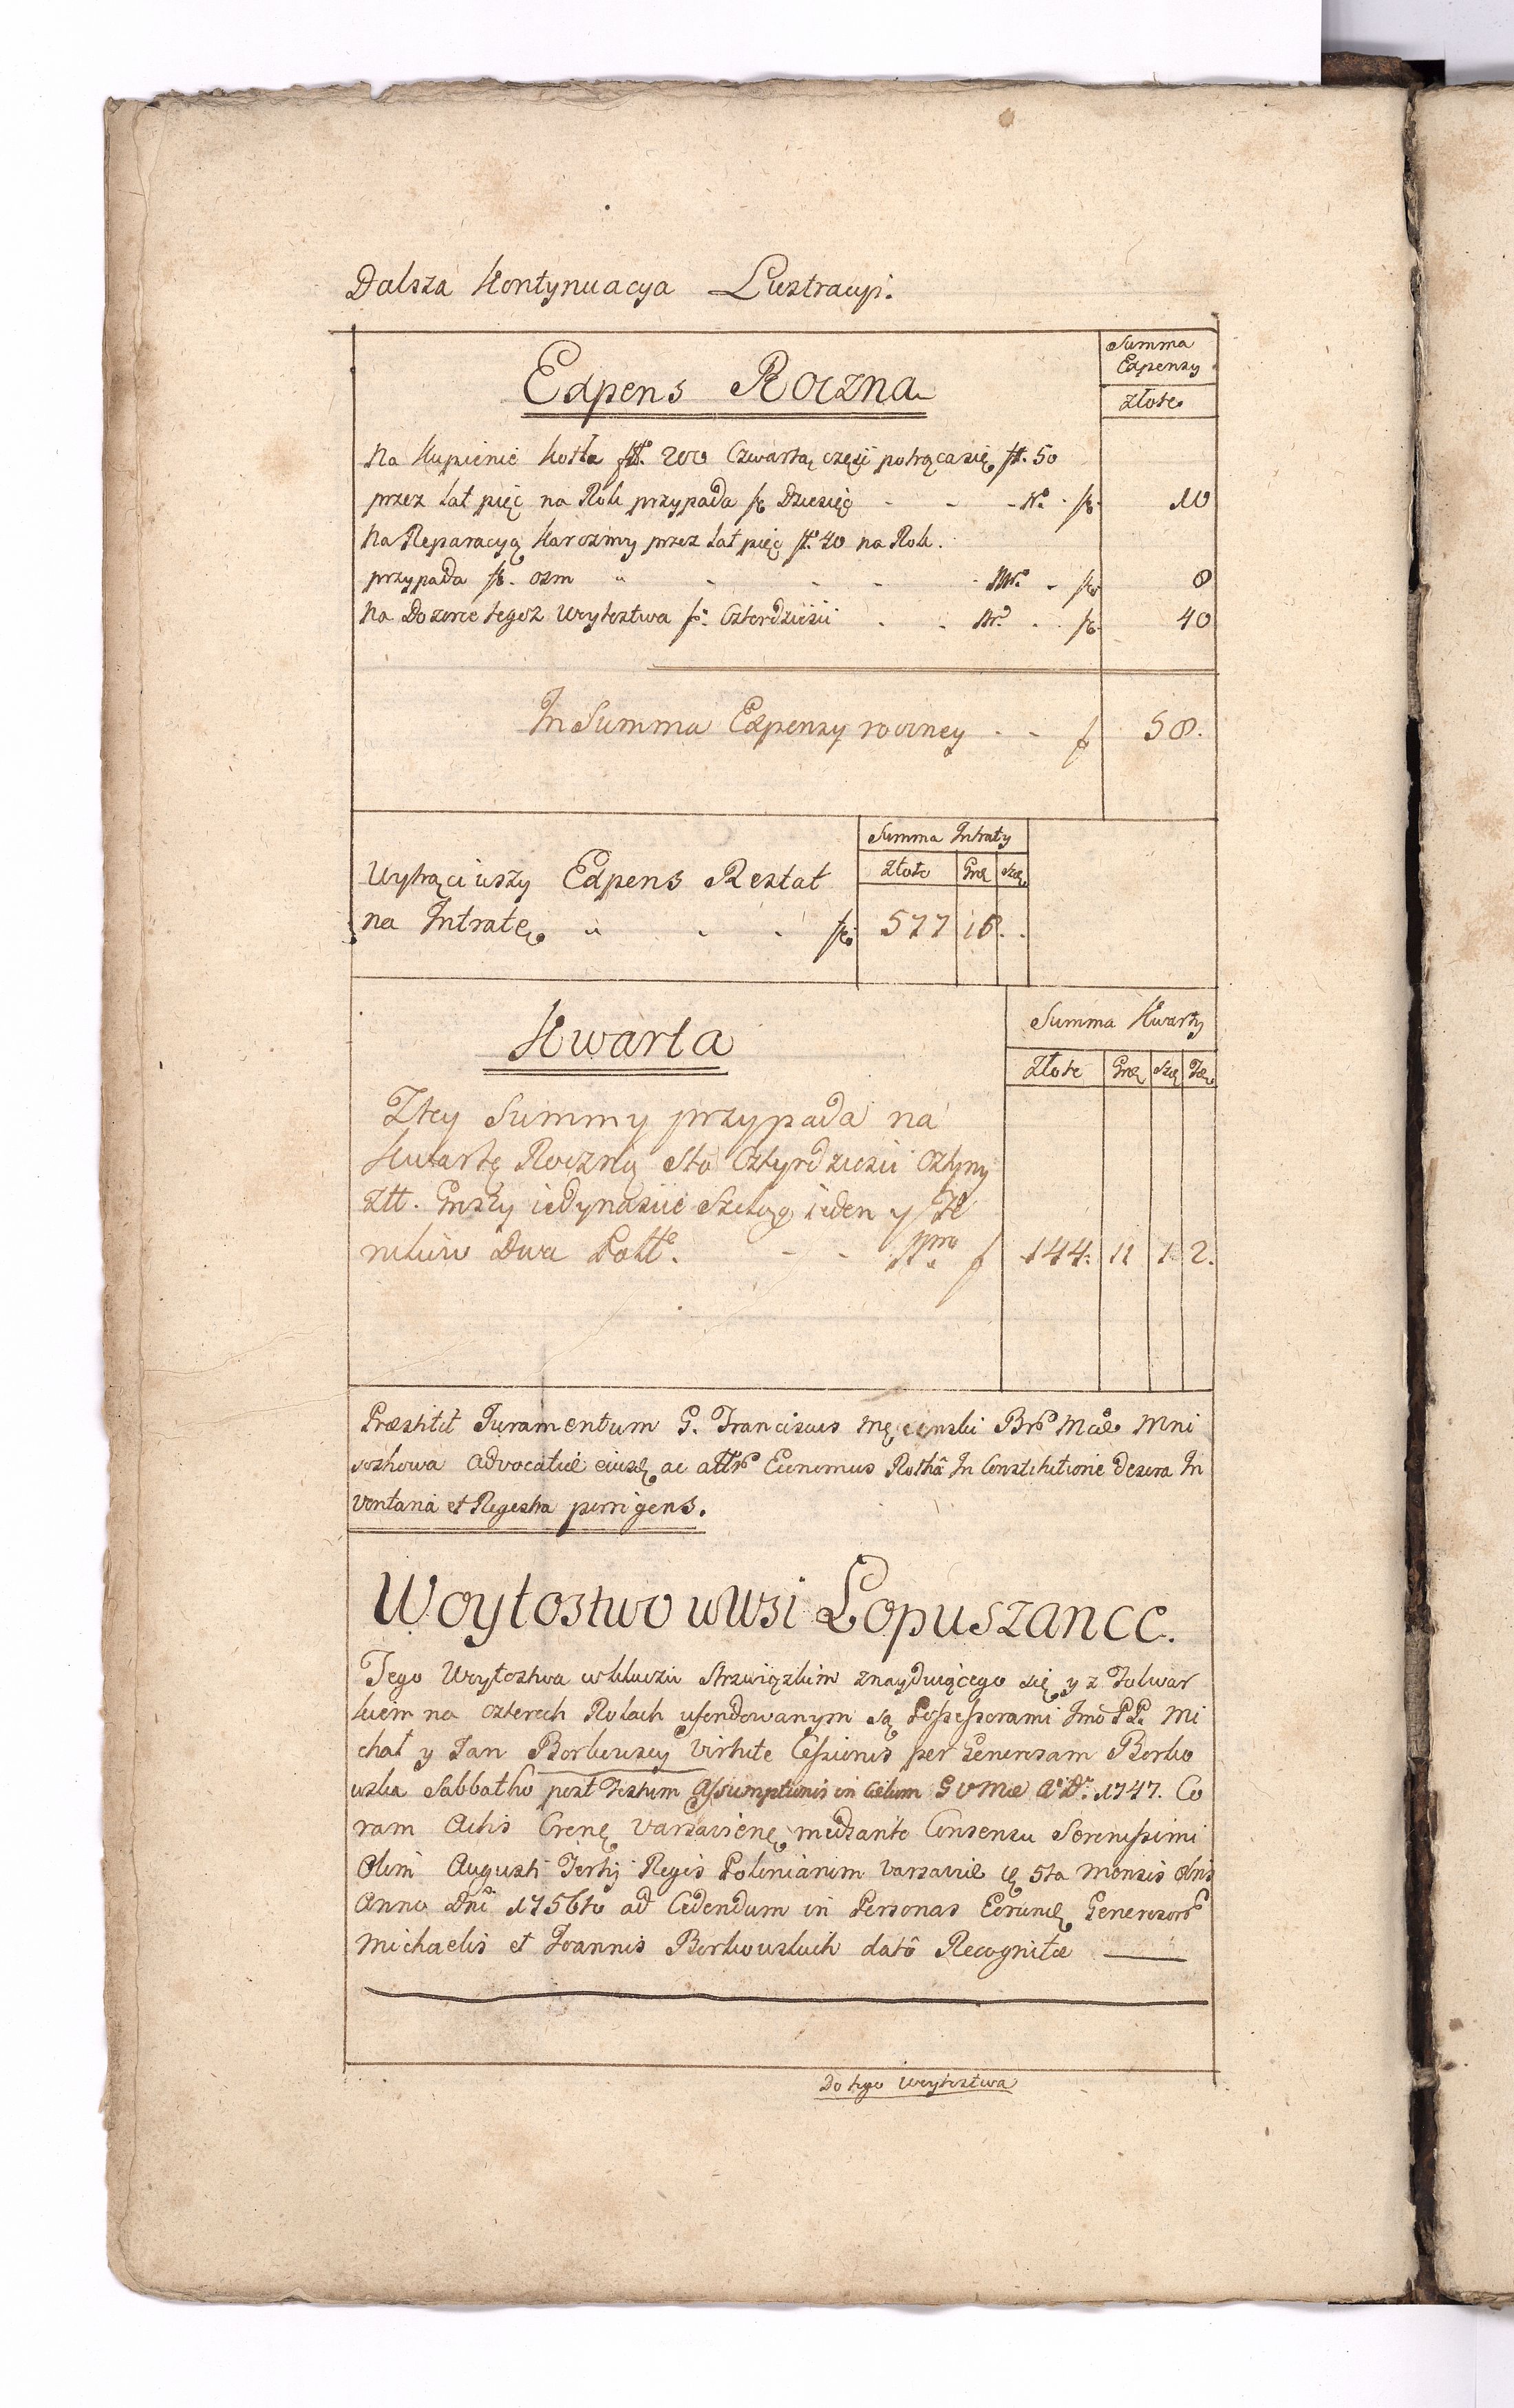 Dalsza Kontynuacya Lustracyi.
Summa
Expensy
Expens Roczna
złote
Na Kupienie kotła fł. 200 Czwartą część potrąca się fł. 50
przez lat pięć na Rok przypada fł. Dziesięć - - - Nro. fł. 10
Na Reparacyą Karczmy przez lat pięć fł. 40 na Rok.
przypada fł. osm - - - - Nro. - fł. 8
Na Dozorce tegoż Woytostwa fł. Czterdzieści - - Nro. - fł. 40
In Summa Expensy roczney - - f 58.
Summa Intraty
złote Grsz Szel
Wytrąciwszy Expens Restat
na Intratę - - - fł. 577 16. .
Kwarta
Summa Kwarty
Złote Grsz Szel
Ztey Summy przypada na
Kwartę Roczną Sto Cztyrdzieści Cztyry
Złł. Groszy iedynaście Szeląg ieden y
Dwa Pollˢ. - - f 144. 11 1. 2.
Præstitit Juramentum G. Franciscus Męcinski Mni
szkowa Advocatiæ eiusd. ac Rothâ In Constitutione In
ventaria et Regestra porrigens.
Woytostwo w Wsi Łopuszance.
Tego Woytostwa w kluczu Strzwiązkim znayduiącego się y z Folwar
kiem na czterech Rolach ufundowanym są Possessorami Imo PP. Mi
chał y Jan Borkowscy virtute Cessionis per Generosam Borko
wska Sabbatho post Festum Assumptionis in Cælum BVMæ Aº Dⁿⁱ 1747. Co
ram Actis mediante Consensu Serenissimi
Olim Augusti Tertij Regis Poloniarum Varsaviæ 5ta Mensis
Anno Dni 1756to ad Cedendum in Personas Generosor
Michaelis et Joannis Borkowskich datô Recognitæ
Do tego Woytostwa